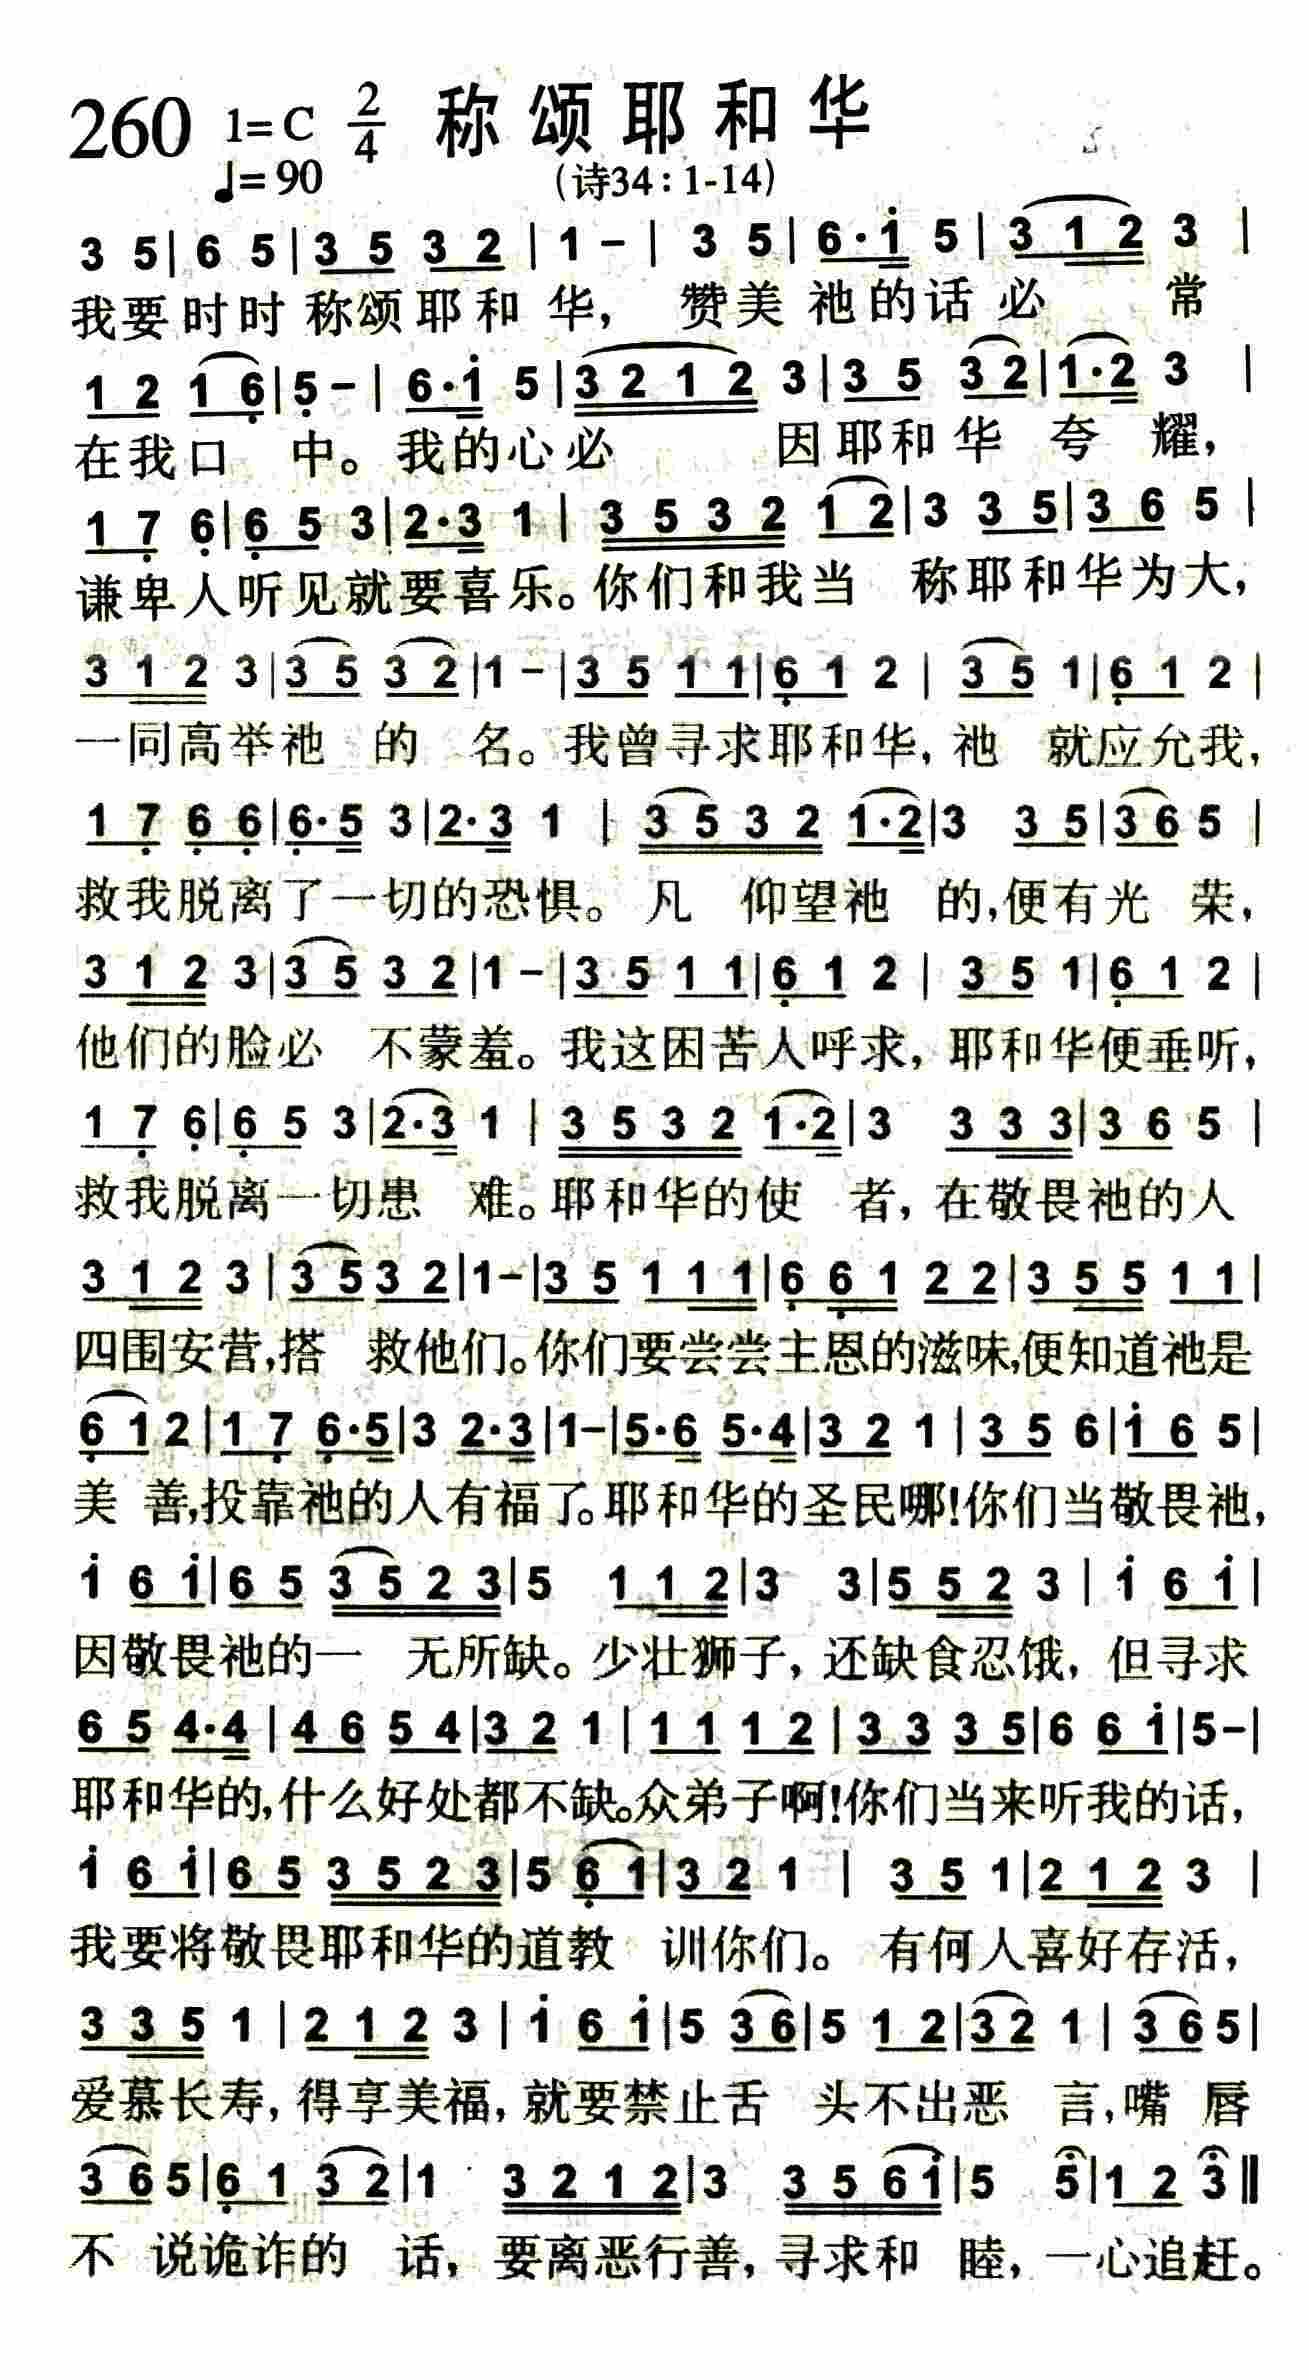 260 1=C 2/4 称颂耶和华
♩=90 (诗34：1-14)
3 5 | 6 5 | 3 5 3 2 | 1 - | 3 5 | 6·i 5 | 3 1 2 3 |
我要时时称颂耶和华，赞美祂的话必常
1 2 1 6 | 5 - | 6·i 5 | 3 2 1 2 3 | 3 5 3 2 | 1·2 3 |
在我口中。我的心必因耶和华夸耀，
1 7 6 | 6 5 3 | 2·3 1 | 3 5 3 2 1 2 | 3 3 5 | 3 6 5 |
谦卑人听见就要喜乐。你们和我当称耶和华为大，
3 1 2 3 | 3 5 3 2 | 1 - | 3 5 1 1 | 6 1 2 | 3 5 1 | 6 1 2 |
一同高举祂的名。我曾寻求耶和华，祂就应允我，
1 7 6 6 | 6·5 3 | 2·3 1 | 3 5 3 2 1·2 | 3 3 5 | 3 6 5 |
救我脱离了一切的恐惧。凡仰望祂的，便有光荣，
3 1 2 3 | 3 5 3 2 | 1 - | 3 5 1 1 | 6 1 2 | 3 5 1 | 6 1 2 |
他们的脸必不蒙羞。我这困苦人呼求，耶和华便垂听，
1 7 6 | 6 5 3 | 2·3 1 | 3 5 3 2 1·2 | 3 3 3 3 | 3 6 5 |
救我脱离一切患难。耶和华的使者，在敬畏祂的人
3 1 2 3 | 3 5 3 2 | 1 - | 3 5 1 1 1 | 6 6 1 2 2 | 3 5 5 1 1 |
四围安营，搭救他们。你们要尝尝主恩的滋味，便知道祂是
6 1 2 | 1 7 6·5 | 3 2·3 | 1 - | 5·6 5·4 | 3 2 1 | 3 5 6 | i 6 5 |
美善，投靠祂的人有福了。耶和华的圣民哪！你们当敬畏祂，
i 6 i | 6 5 3 5 2 3 | 5 1 1 2 | 3 3 | 5 5 2 3 | i 6 i |
因敬畏祂的一无所缺。少壮狮子，还缺食忍饿，但寻求
6 5 4·4 | 4 6 5 4 | 3 2 1 | 1 1 1 2 | 3 3 3 5 | 6 6 i | 5 - |
耶和华的，什么好处都不缺。众弟子啊！你们当来听我的话，
i 6 i | 6 5 3 5 2 3 | 5 6 1 | 3 2 1 | 3 5 1 | 2 1 2 3 |
我要将敬畏耶和华的道教训你们。有何人喜好存活，
3 3 5 1 | 2 1 2 3 | i 6 i | 5 3 6 | 5 1 2 | 3 2 1 | 3 6 5 |
爱慕长寿，得享美福，就要禁止舌头不出恶言，嘴唇
3 6 5 | 6 1 3 2 | 1 3 2 1 2 | 3 3 5 6 i | 5 5 | 1 2 3 ‖
不说诡诈的话，要离恶行善，寻求和睦，一心追赶。